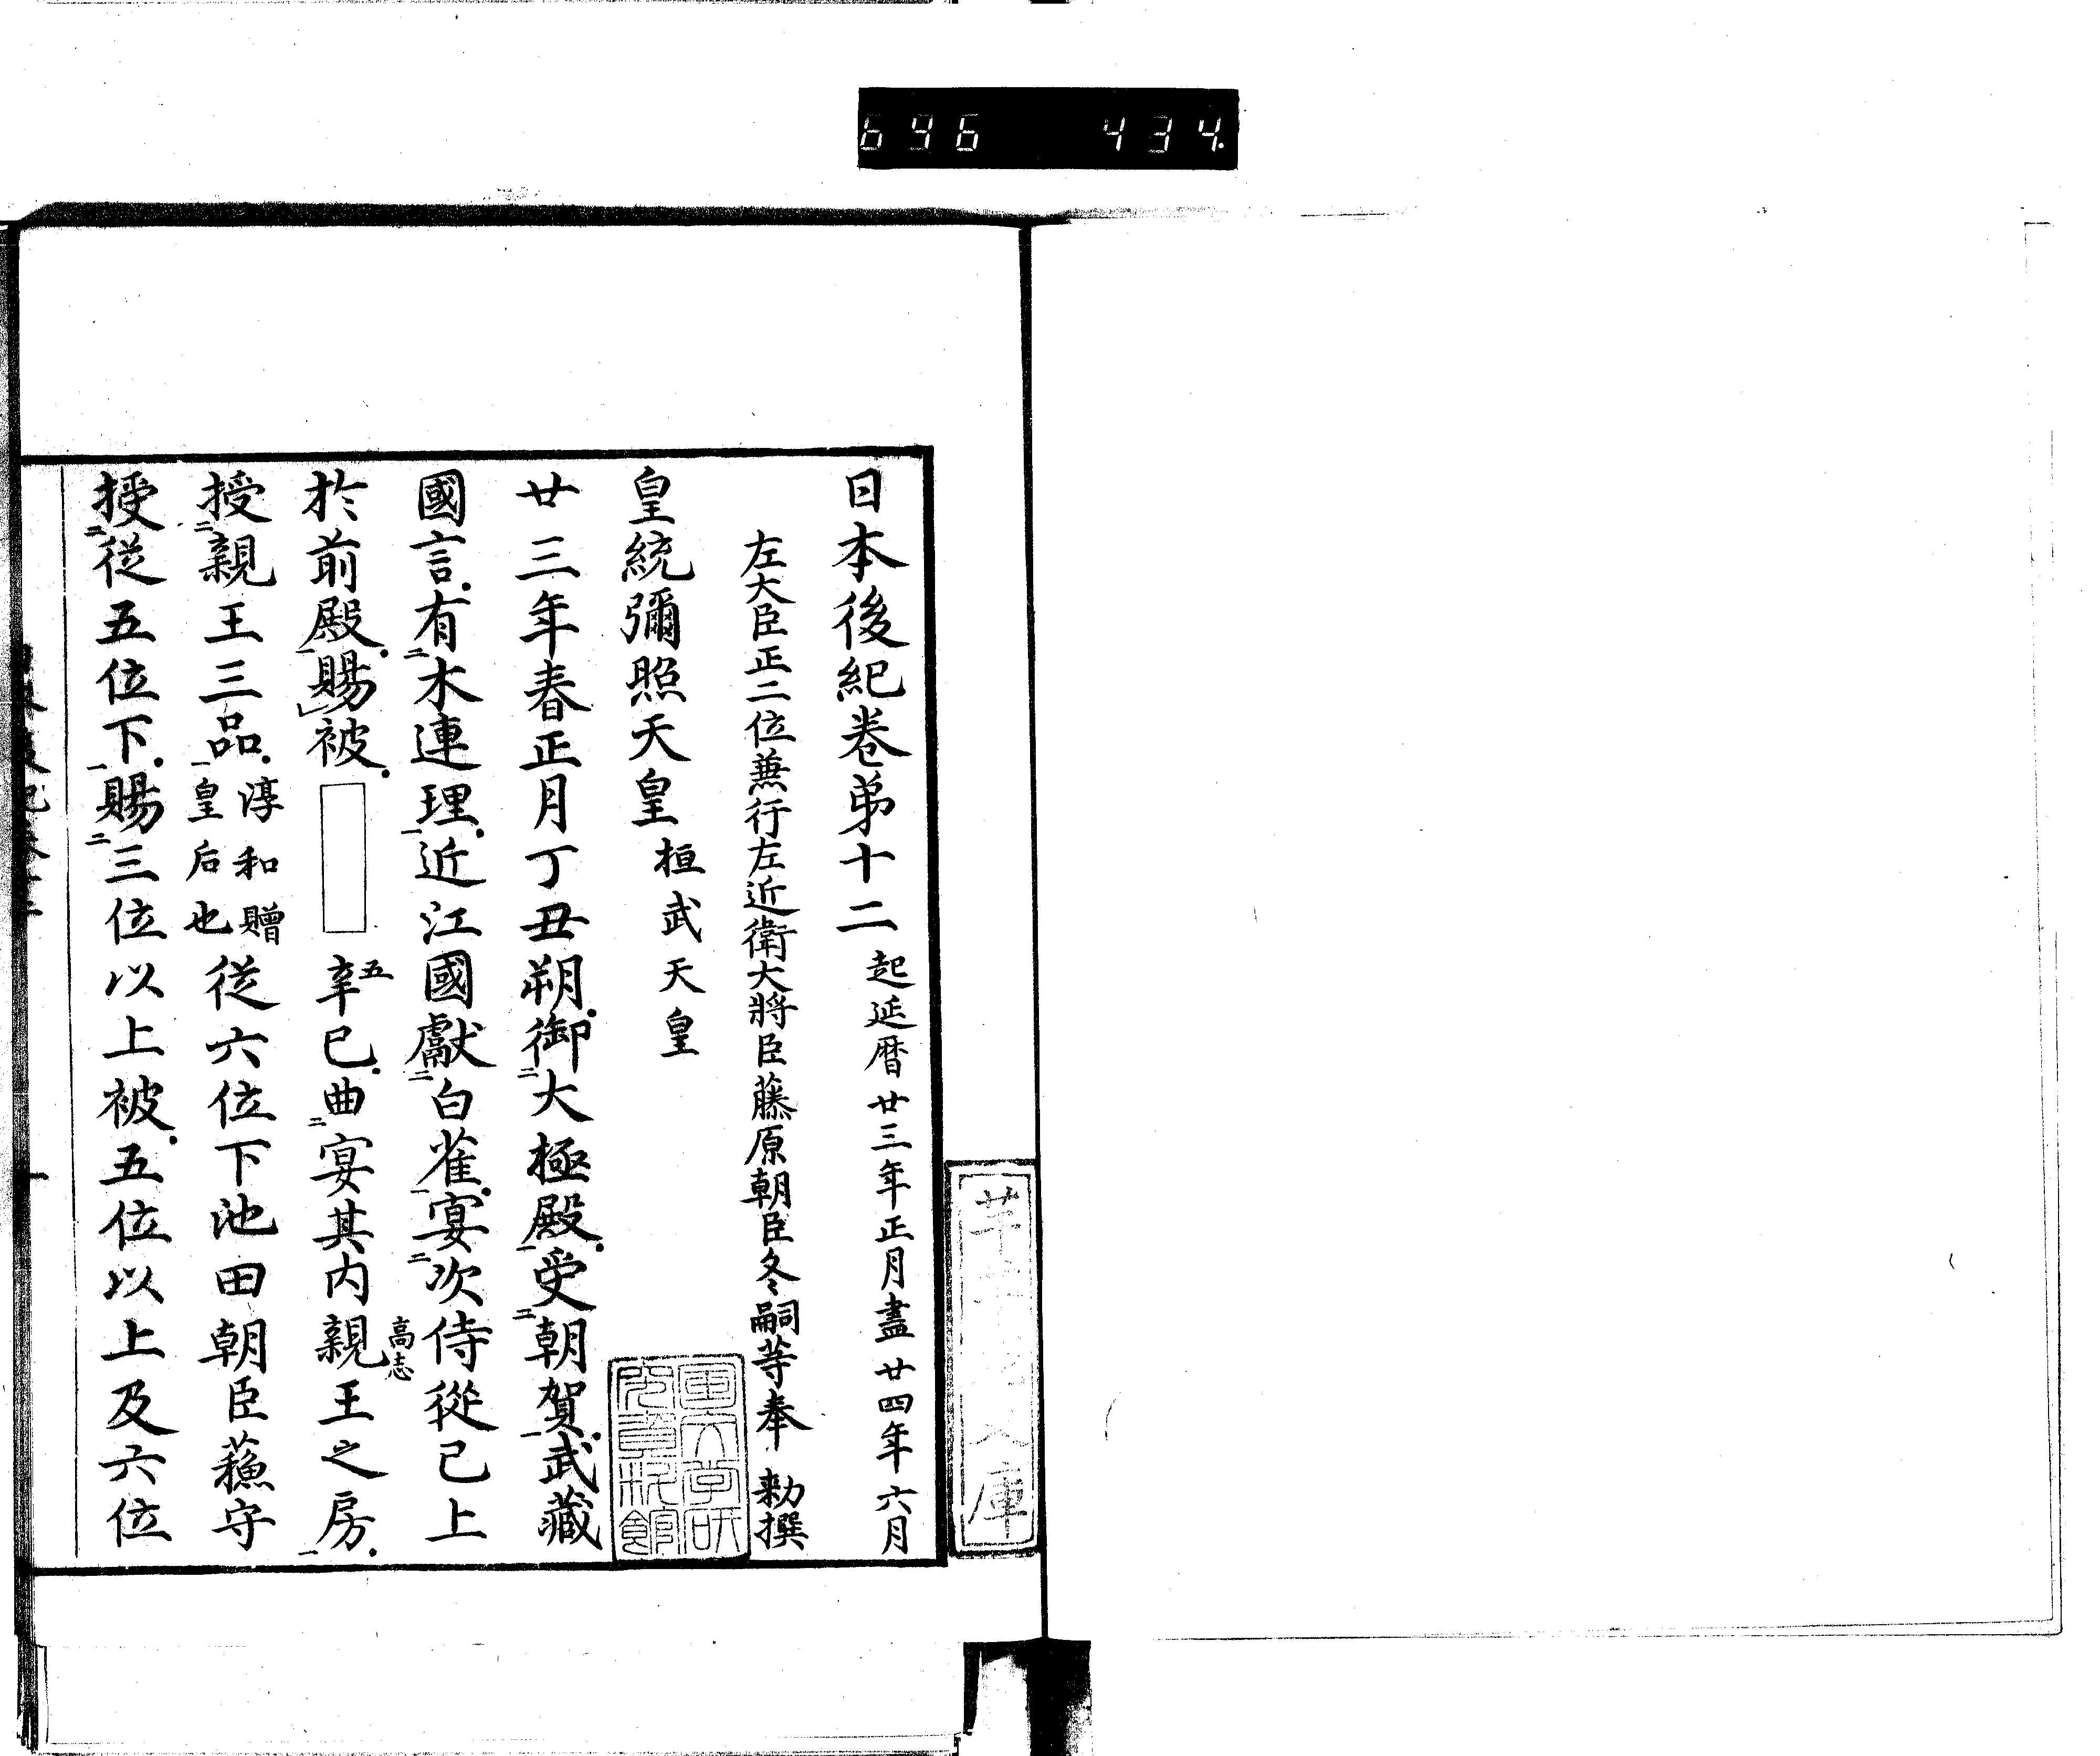 696 434.
日本後紀卷第十二 起延暦廿三年正月盡廿四年六月
左大臣正二位兼行左近衛大將臣藤原朝臣冬嗣等奉 勅撰
皇統彌照天皇 桓武天皇
廿三年春正月丁丑朔御二大極殿一受二朝賀一武藏
國言有二木連理一近江國獻二白雀一宴二次侍從已上
於前殿一賜レ被 辛巳曲二宴其内親王之房一
五
高志
授二親王三品一淳和贈皇后也從六位下池田朝臣蘓守
授二從五位下一賜二三位以上被五位以上及六位
庫